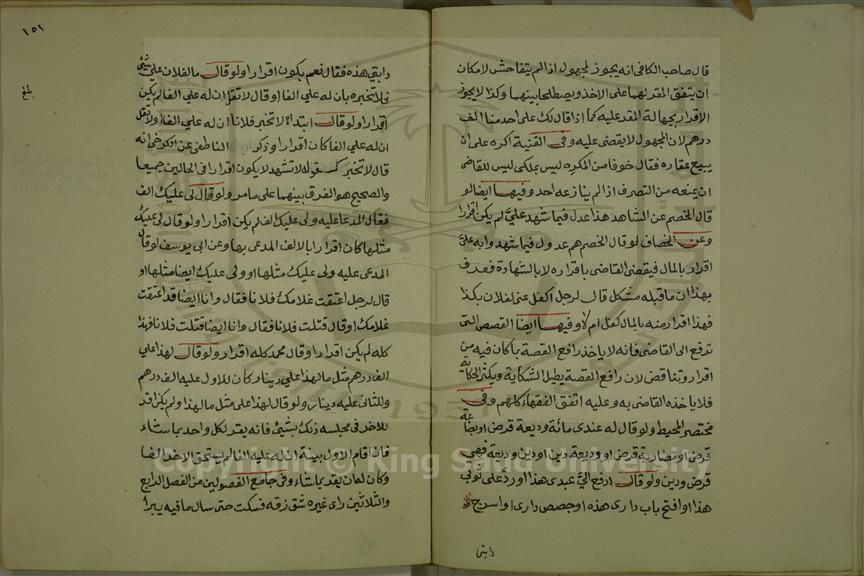 قال صاحب الكافي انه يجوز لمجهول اذا لم يتفاحش لامكان
ان يتفق المقر لهما على الاخذ ويصطلحا بينهما وكذا لا يجوز
الاقرار بجهالة المقر عليه كما اذا قال لك على احدمنا الف
درهم لان المجهول لا يقضى عليه وفي القنية اكره على ان
يبيع عقاره فقال خوفا من المكره ليس بملكي ليس للقاضي
ان يمنعه من التصرف اذا لم ينازعه احد وفيها ايضا لو
قال الخصم عن الشاهد هذا عدل فيما شهد علي لم يكن اقرارا
وعن الخصاف لو قال الخصم هم عدول فيما شهدوا به علي
اقرار بالمال فيقضي القاضي باقراره لا بالشهادة فعرف
بهذا ان ما قبله مشكل قال لرجل اكفل عني لفلان بكذا
فهذا اقرار منه بالمال كفل ام لا وفيها ايضا القصص التي
تدفع الى القاضي فانه لا ياخذ رافع القصة بما كان فيه من
اقرار وتناقض لان رافع القصة يطيل الشكاية ويكثر الحكاية
فلا ياخذه القاضي به وعليه اتفق الفقهاء كلهم وفي
مختصر المحيط ولو قال له عندي مائة وديعة قرض او بضاعة
قرض او مضاربة قرض او وديعة دين او دين وديعة فهي
قرض ودين ولو قال ادفع الي عبدي هذا او رد علي ثوبي
هذا او افتح باب داري هذه او جصص داري او اسرج
دابتي
١٥١
دابتي هذه فقال نعم يكون اقرارا ولو قال ما لفلان علي شئ
فلا تخبره بان له علي الفا او قال لا تقل ان له علي الفا لم يكن
بلغ
اقرارا ولو قال ابتداء لا تخبر فلانا ان له علي الفا او لا تقل
ان له علي الفا كان اقرارا وذكر الناطفي عن الكرخي انه
قال لا تخبر كـ قوله لا تشهد لا يكون اقرارا في الحالين جميعا
والصحيح هو الفرق بينهما على ما مر ولو قال لي عليك الف
فقال المدعا عليه ولي عليك الف لم يكن اقرارا ولو قال لي عليك
مثلها كان اقرارا بالالف المدعى بها وعن ابي يوسف لو قال
المدعى عليه ولي عليك مثلها او ولي عليك ايضا مثلها او
قال لرجل اعتقت غلامك فلانا فقال وانا ايضا قد اعتقت
غلامك او قال قتلت فلانا فقال وانا ايضا قتلت فلانا فهذا
كله لم يكن اقرارا وقال محمد كله اقرار ولو قال لهذا علي
الف درهم مثل ما لهذا علي دينار كان للاول عليه الف درهم
وللثاني عليه دينار ولو قال لهذا علي مثل ما لهذا ولم يكن قد
للاخذ في مجلسه ذلك بشئ فانه يقر لكل واحد بما شاء
فان اقام الاول بينة ان له عليه الفا لم يستحق الاخذ الفا
وكان له ان يقر بما شاء وفي جامع الفصولين من الفصل الرابع
والثلاثين راى غيره شق زقه فسكت حتى سال ما فيه يبرأ
Copyright © King Saud University
1957